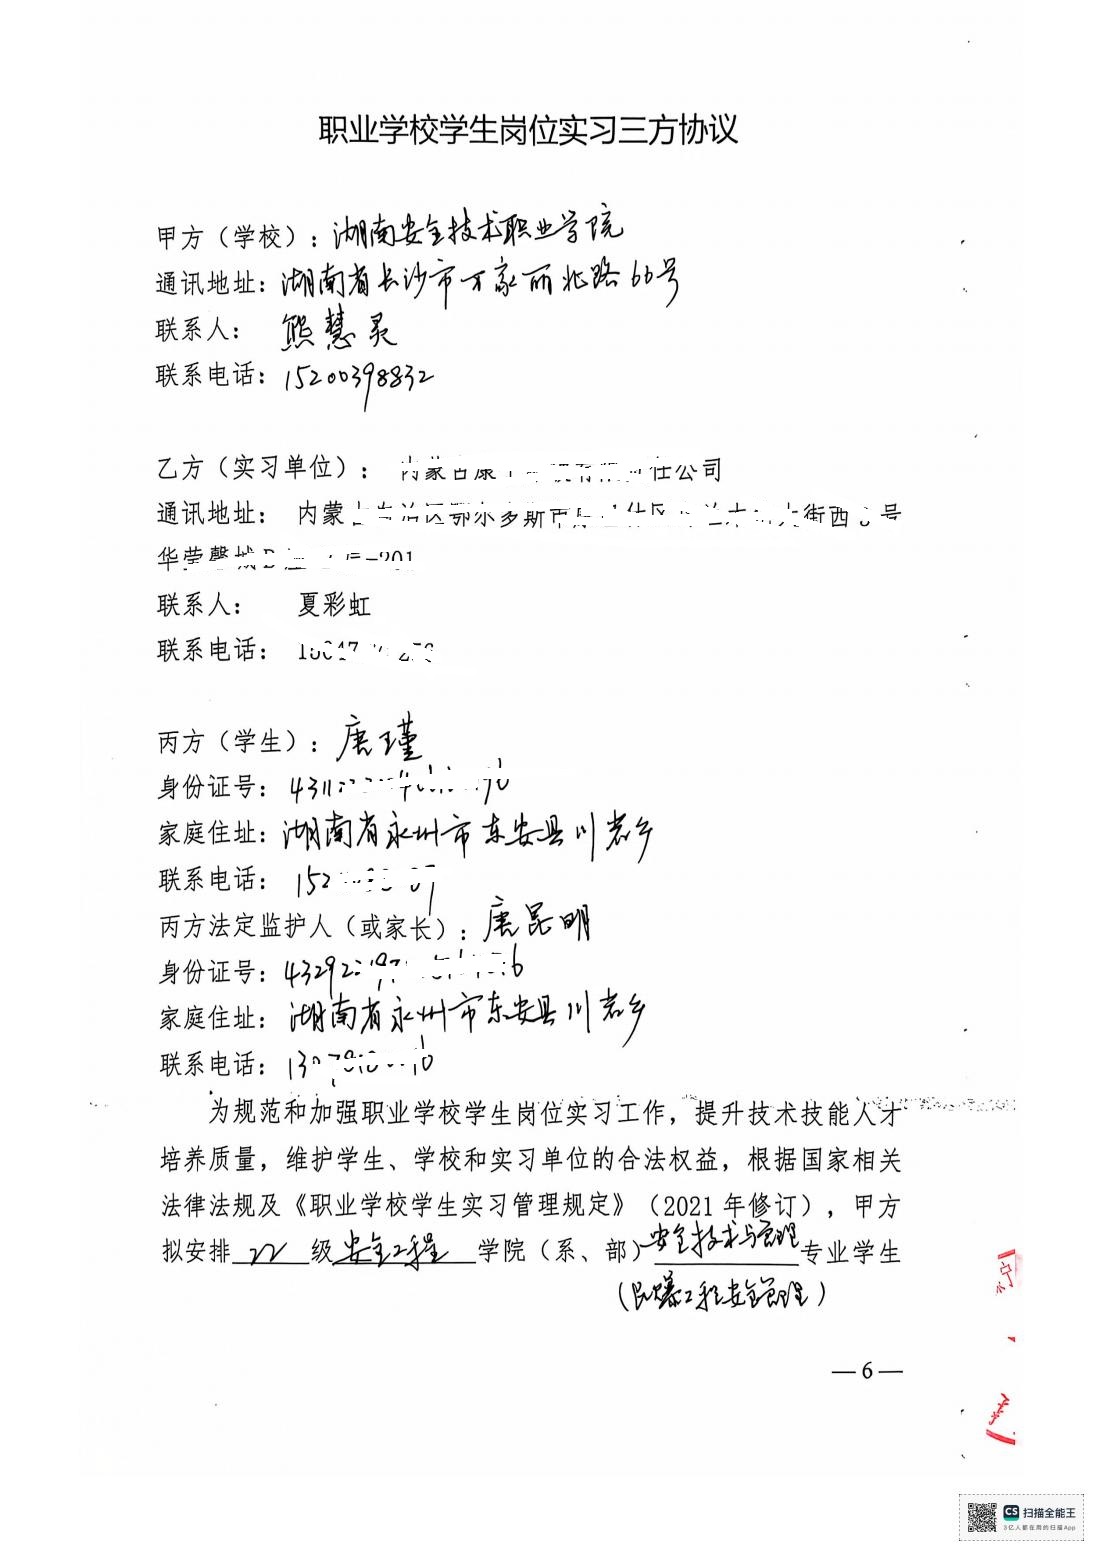 职业学校学生岗位实习三方协议
甲方（学校）：湖南安全技术职业学院
通讯地址：湖南省长沙市万家丽北路66号
联系人： 熊慧灵
联系电话：15200398832
乙方（实习单位）： 内蒙古康 任公司
通讯地址： 内蒙 自治区鄂尔多斯市 大街西 号
华莹馨城 -201
联系人： 夏彩虹
联系电话：
丙方（学生）：唐瑾
身份证号：
家庭住址：湖南省永州市东安县川岩乡
联系电话： 152
丙方法定监护人（或家长）：唐昆明
身份证号：
家庭住址：湖南省永州市东安县川岩乡
联系电话：
为规范和加强职业学校学生岗位实习工作，提升技术技能人才
培养质量，维护学生、学校和实习单位的合法权益，根据国家相关
法律法规及《职业学校学生实习管理规定》（2021年修订），甲方
拟安排 22 级 安全工程 学院（系、部）安全技术与管理 专业学生
（民爆工程安全管理）
—6—
CS 扫描全能王
3亿人都在用的扫描App